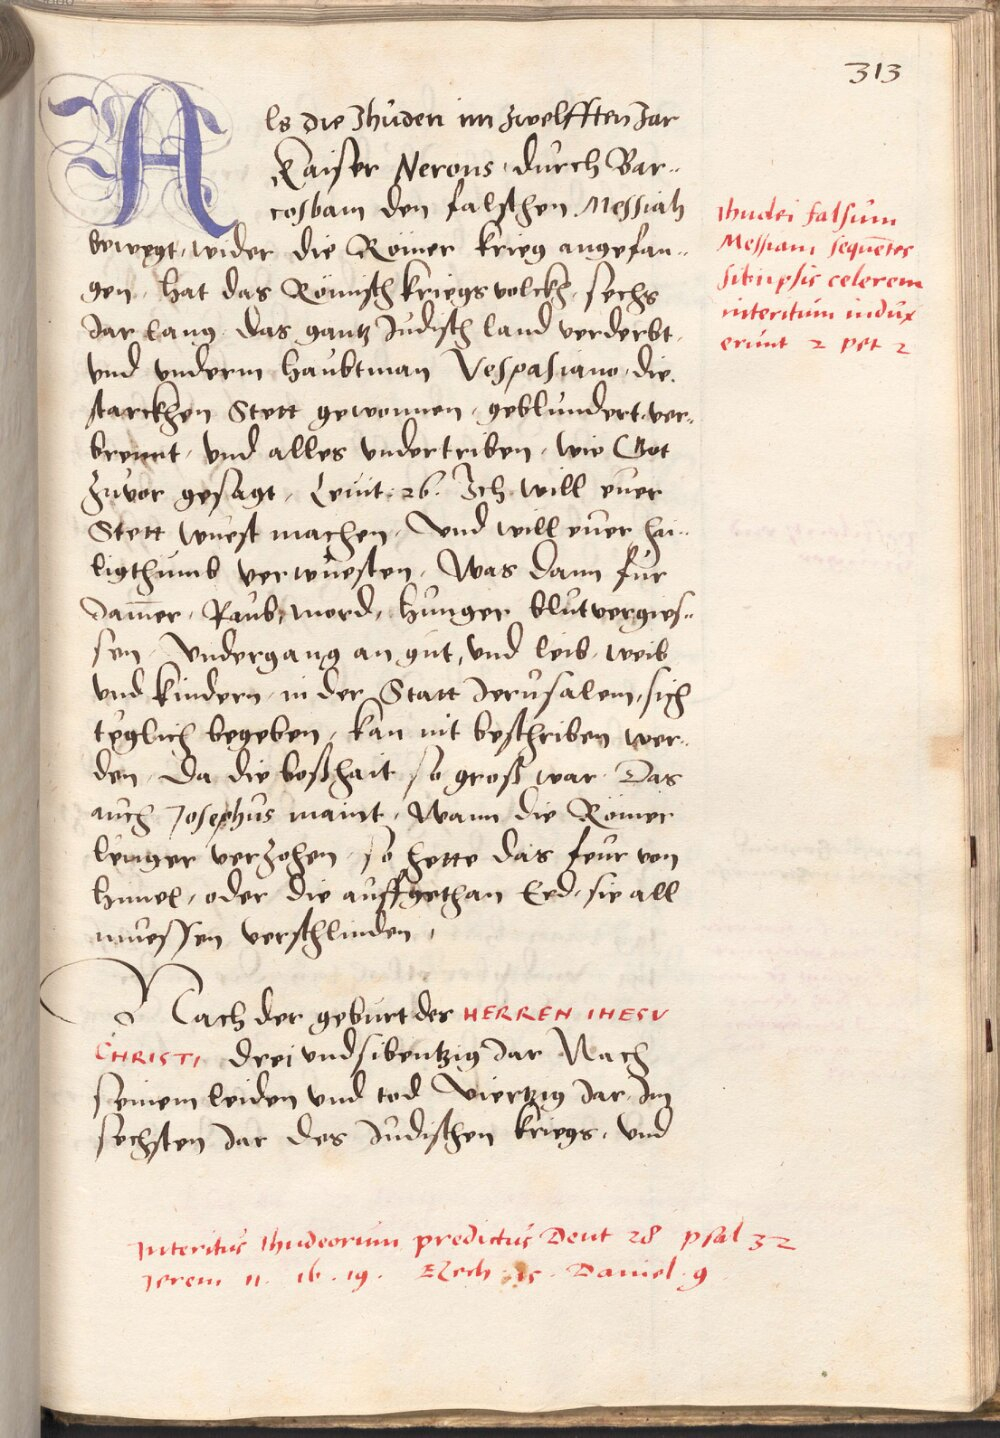 313
Als die Jhuden im zwelfften Jar
Kaiser Nerons, durch Bar-
cosbam den falschen Messiah
bewegt, wider die Römer krieg angefan-
gen, hat das Römisch kriegsvolckh, sechs
Jar lang, das gantz Judisch land verderbt,
vnd vnderm haubtman Vespasiano, die
starckhen Stett gewonnen, geblundert, ver-
brennt, vnd alles vndertriben, wie Got
zuvor gesagt, Levit: 26. Ich will euer
Stett wuest machen, Vnd will euer hai-
ligthumb verwuesten, Was dann für
Jam̄er, Raub, mord, hunger blutvergies-
sen, Vndergang an gut, vnd leib, weib
vnd kindern, in der Statt Jerusalem, sich
teglich begeben, kan nit beschriben wer-
den, Da die boßhait so groß war, Das
auch Josephus maint, Wann die Römer
lenger verzohen, so hette das feur von
himel, oder die auffgethan Erd, sie all
muessen verschlinden,
Nach der geburt des HERREN IHESV
CHRISTI, drei vnd sibentzig Jar Nach
seinem leiden vnd tod Viertzig Jar, Im
sechsten Jar des Judischen kriegs, vnd
Jhudei falsum
Messiam sequētes
sibiipsis celerem
interitum indux
erunt 2 pet 2
Interitus Jhudeorum predictus Deut 28 psal 32
Jerem 11. 16. 19. Ezech 15. Daniel. 9